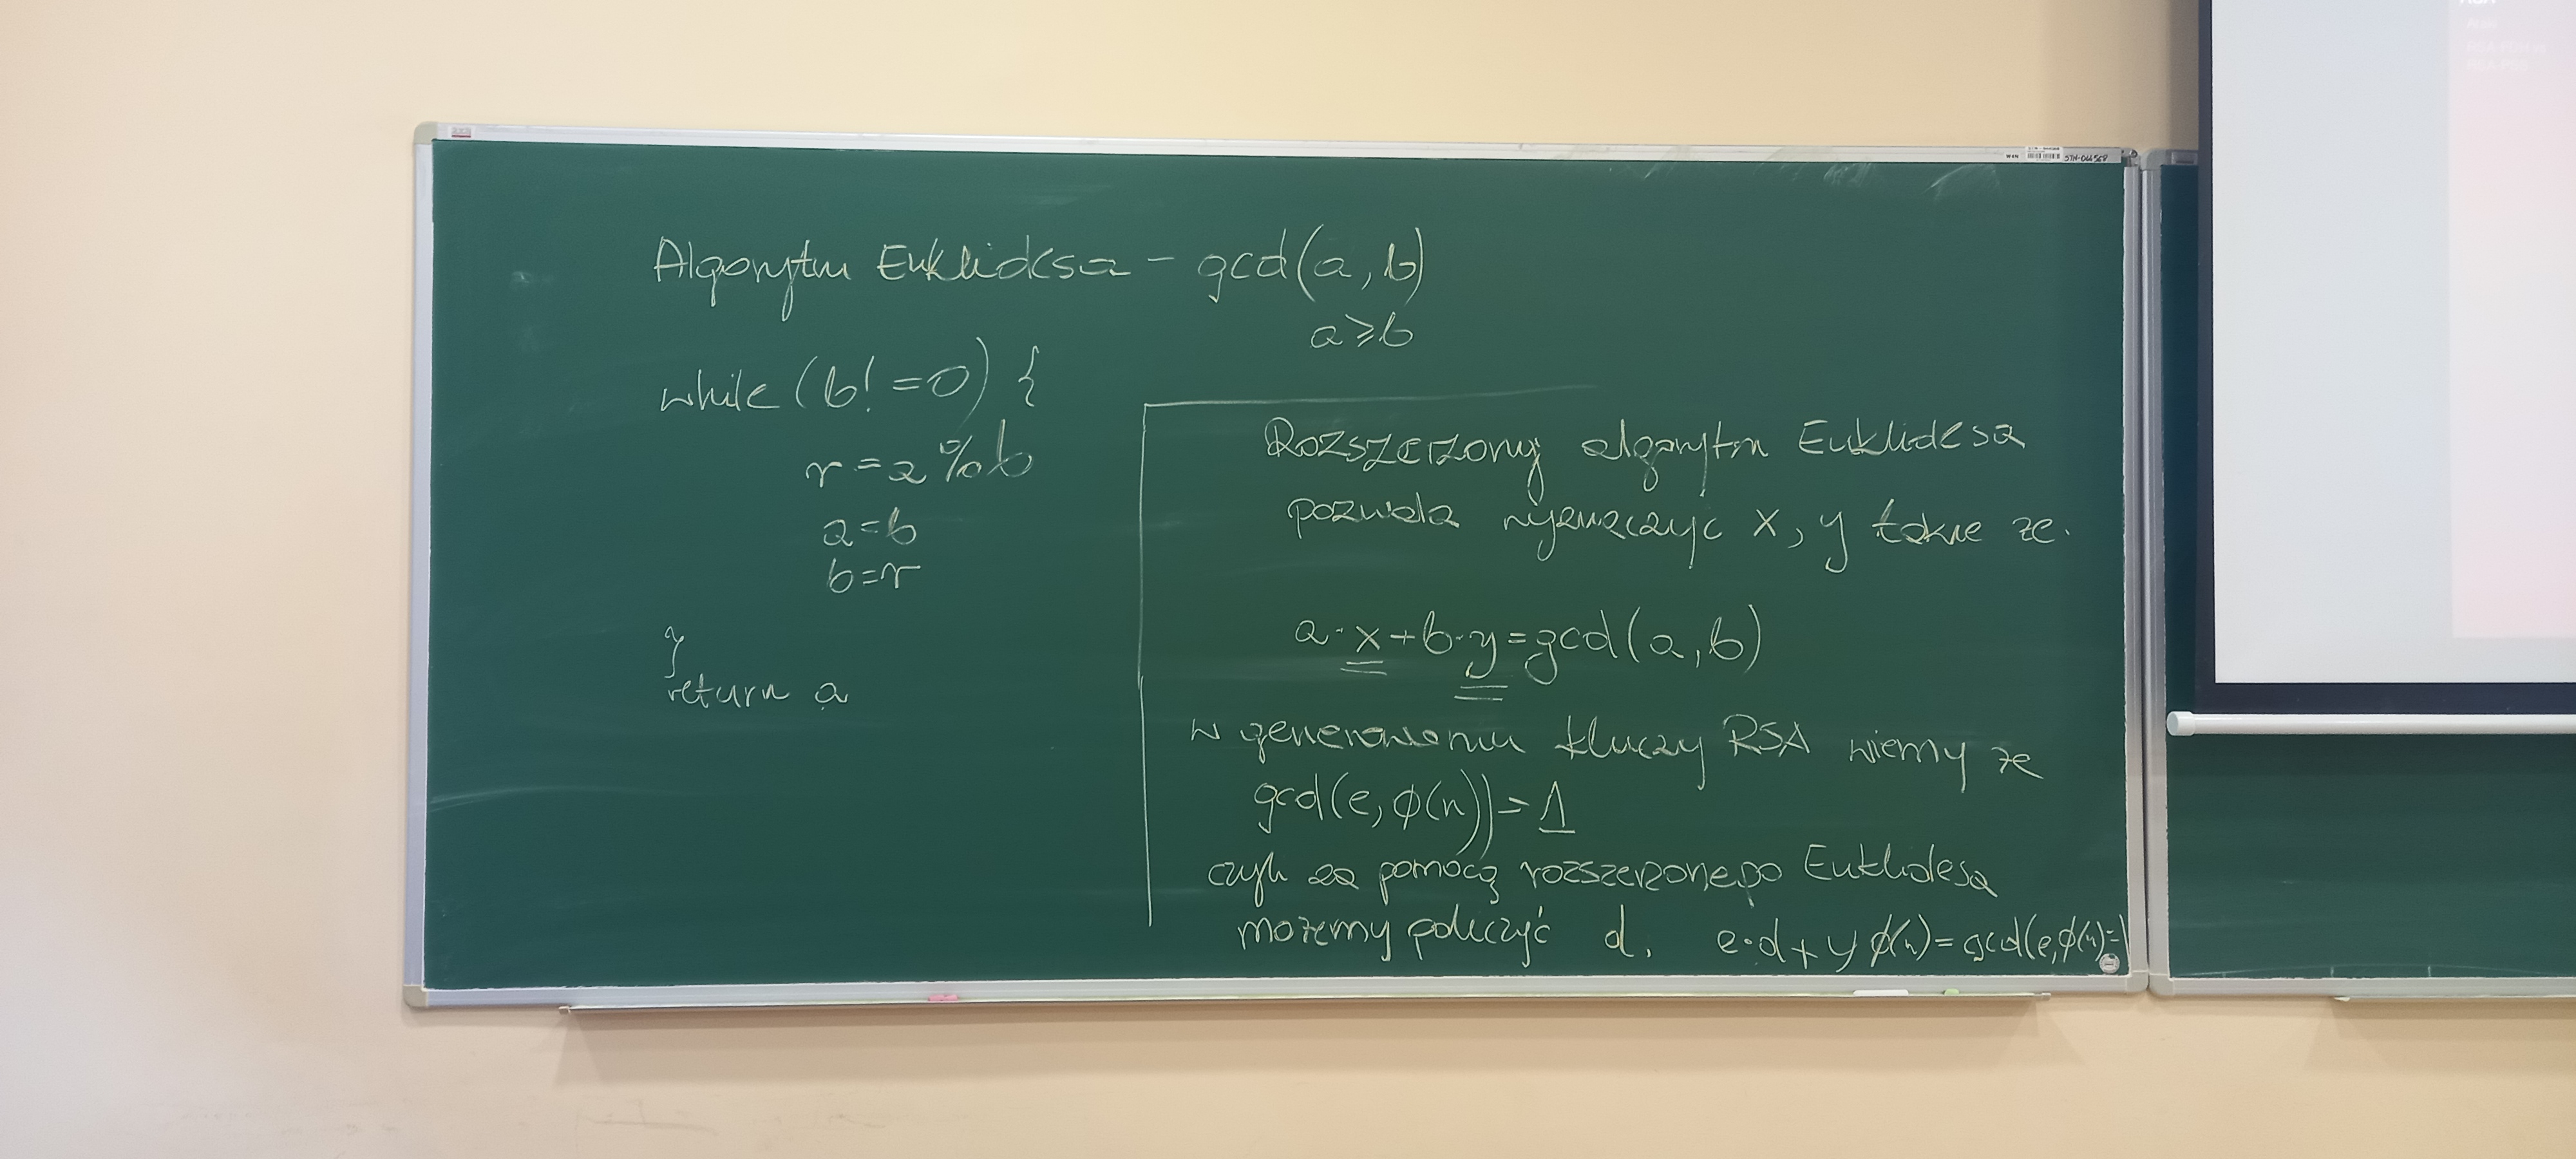 Algorytm Euklidesa - gcd(a, b)
a ⩾ b
while (b! = 0) {
r = a % b
a = b
b = r
}
return a
Rozszerzony algorytm Euklidesa
pozwala wyznaczyc x, y takie ze.
a · x + b · y = gcd(a, b)
w generowaniu kluczy RSA wiemy ze
gcd(e, φ(n)) = 1
czyli za pomocą rozszerzonego Euklidesa
możemy policzyć d. e·d + y φ(n) = gcd(e, φ(n) = 1